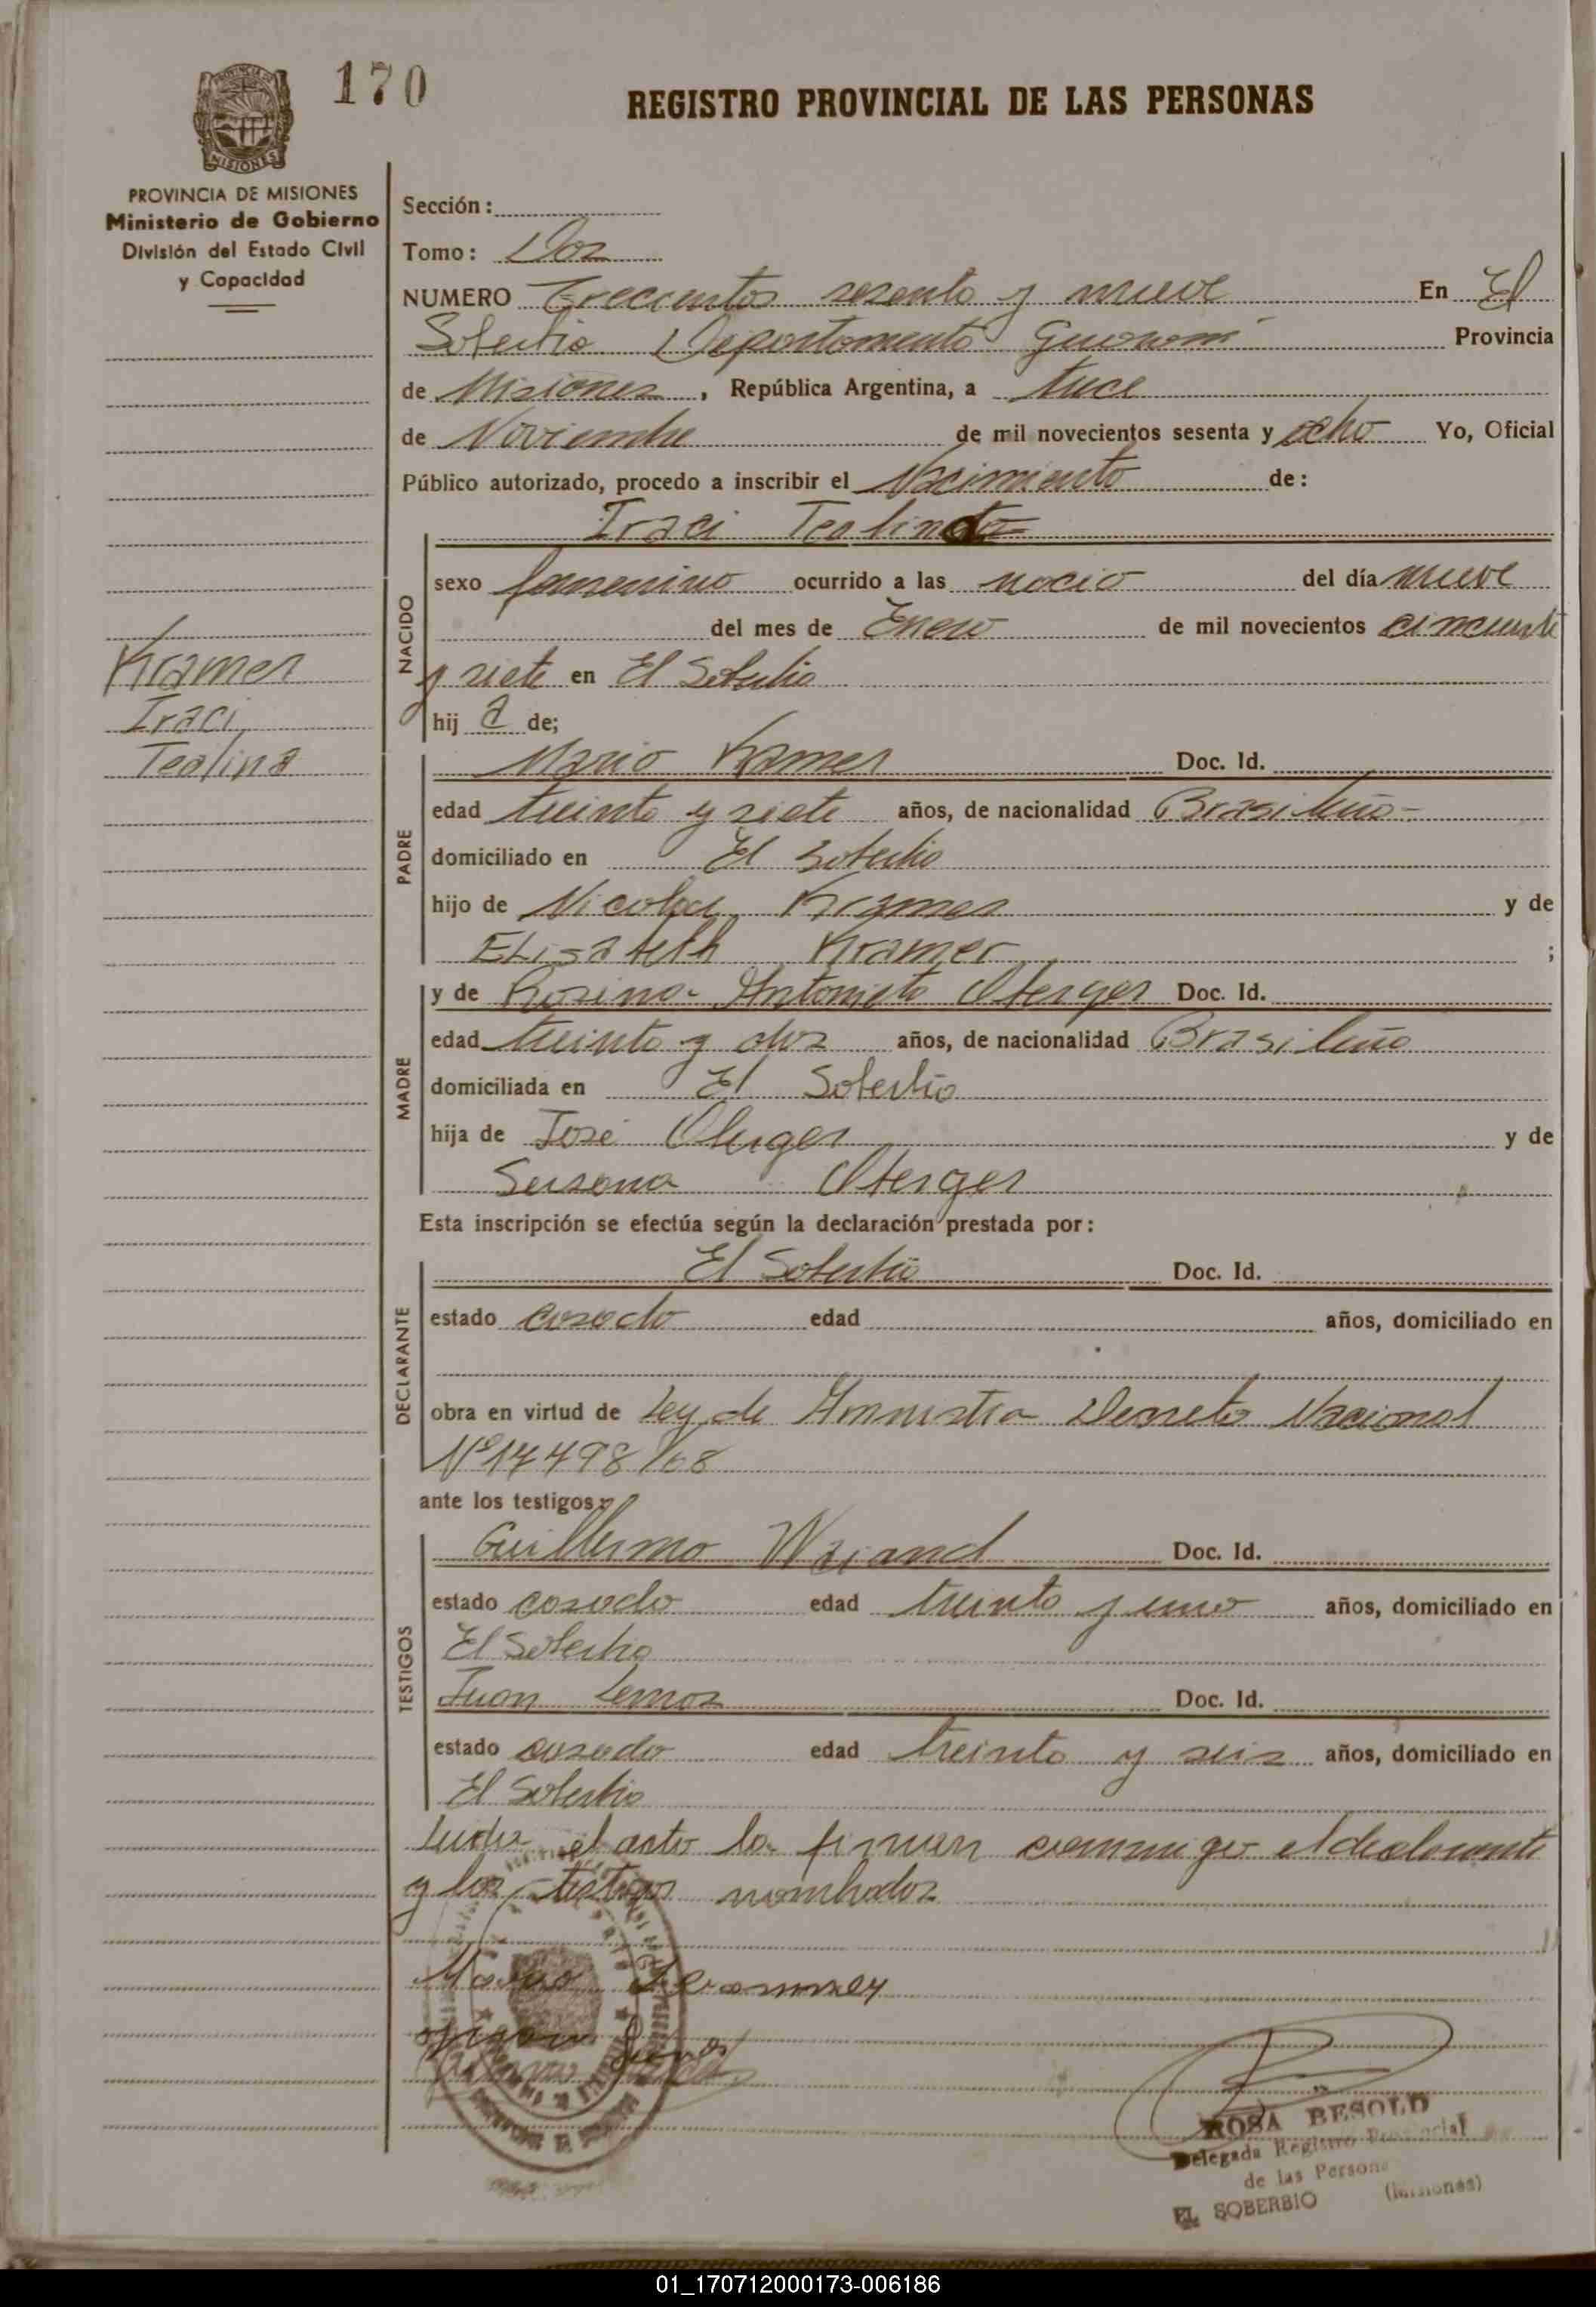 170
REGISTRO PROVINCIAL DE LAS PERSONAS
PROVINCIA DE MISIONES
Ministerio de Gobierno
División del Estado Civil
y Capacidad
Sección:
Tomo: Dos
NUMERO Trecientos sesenta y nueve En El
Soberbio Departamento Guarani Provincia
de Misiones, República Argentina, a trece
de Noviembre de mil novecientos sesenta y ocho Yo, Oficial
Público autorizado, procedo a inscribir el Nacimiento de:
Iraci
NACIDO
sexo femenino ocurrido a las nació del día nueve
del mes de Enero de mil novecientos cincuenta
y siete en El Soberbio
hij a de;
Kramer
Iraci
Teolina
PADRE
Mario Kramer Doc. Id.
edad treinta y siete años, de nacionalidad Brasileño-
domiciliado en El Soberbio
hijo de Nicolas Kramer y de
Elisabeth Kramer ;
MADRE
y de Rosina Antonieta Doc. Id.
edad treinta y dos años, de nacionalidad Brasileña
domiciliada en El Soberbio
hija de José y de
Susana
Esta inscripción se efectúa según la declaración prestada por:
DECLARANTE
El Soberbio Doc. Id.
estado casado edad años, domiciliado en
obra en virtud de Ley de Amnistia Decreto Nacional
Nº 17498/68
ante los testigos:
TESTIGOS
Guillermo Weiand Doc. Id.
estado casado edad treinta y uno años, domiciliado en
El Soberbio
Juan Lemos Doc. Id.
estado casado edad treinta y seis años, domiciliado en
El Soberbio
el acto la firman conmigo el declarante
y los testigos nombrados
Mario Kramer
ROSA BESOLD
Delegada Registro Provincial
de las Personas
EL SOBERBIO (Misiones)
01_170712000173-006186